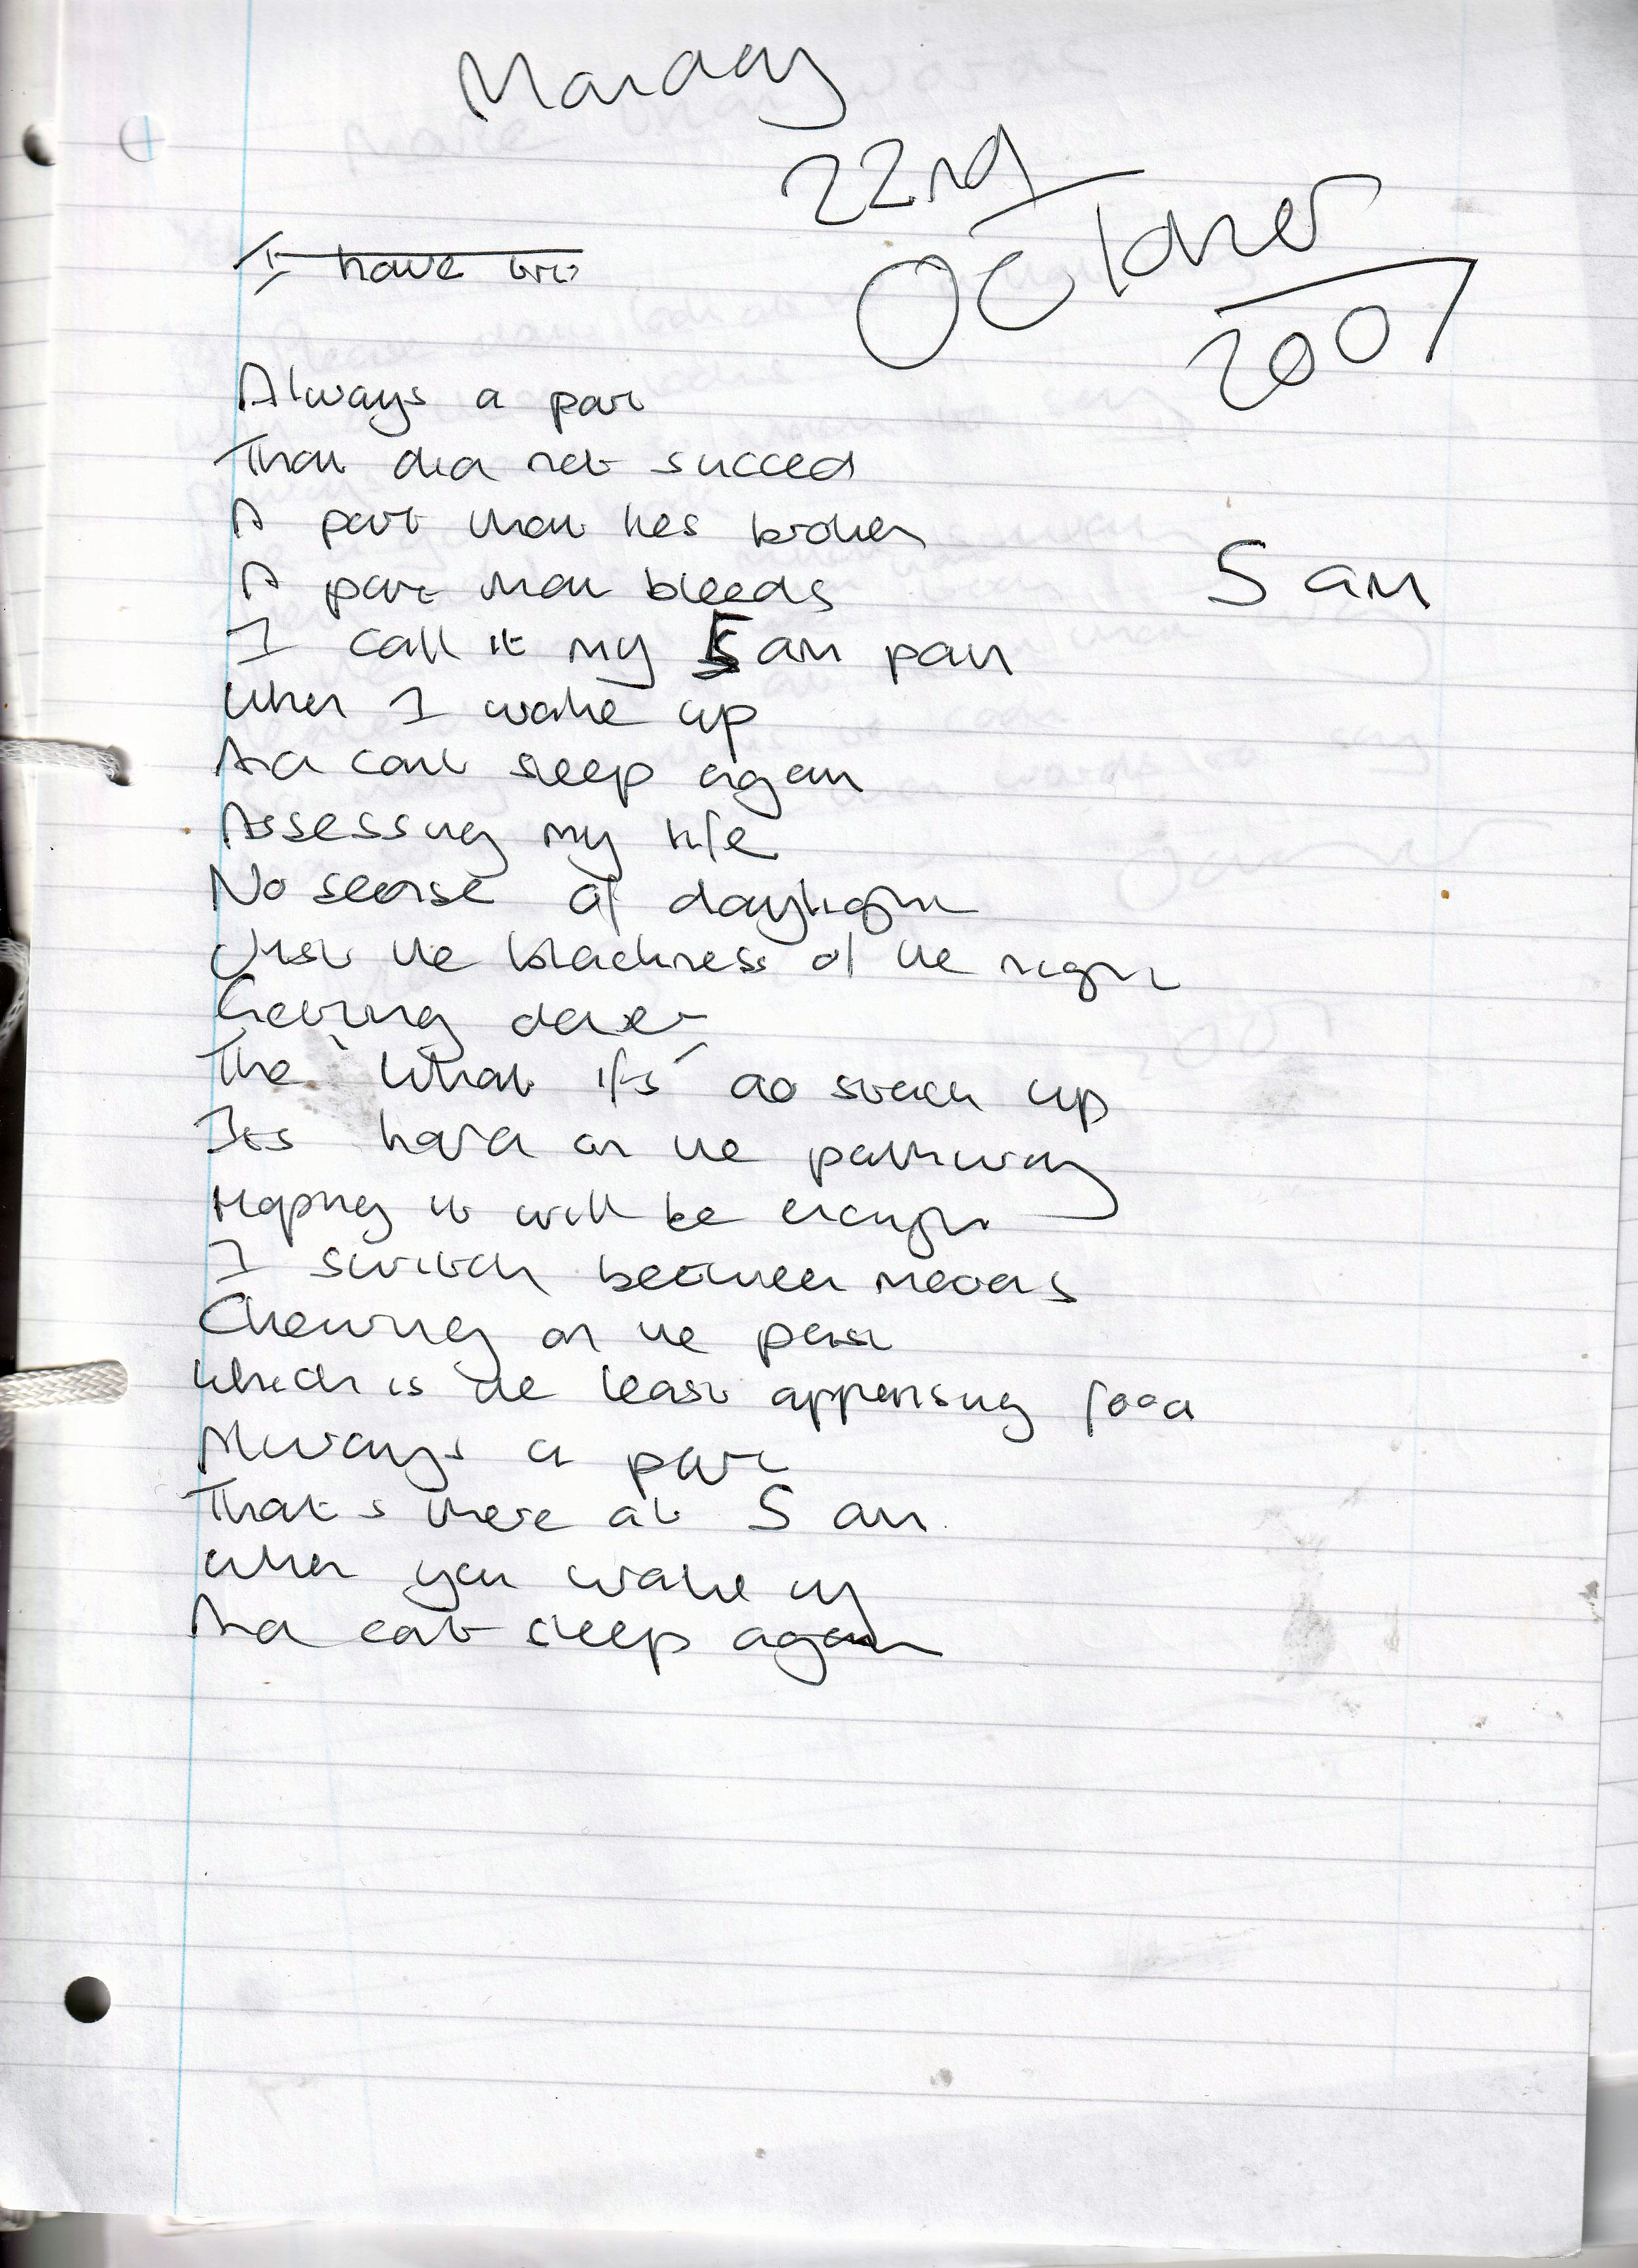 Monday
22nd
October
2007
I have
Always a part
That did not succed
A part that lies broken
A part that bleeds
5 am
I call it my 5 am pain
When I wake up
And cant sleep again
Assessing my life
No sense of daylight
Just the blackness of the night
Getting darker
The 'What ifs' do stack up
Its hard on the pathway
Hoping it will be enough
I switch between moods
Chewing on the past
Which is the least appetising food
Always a part
That's there at 5 am
When you wake up
And cant sleep again